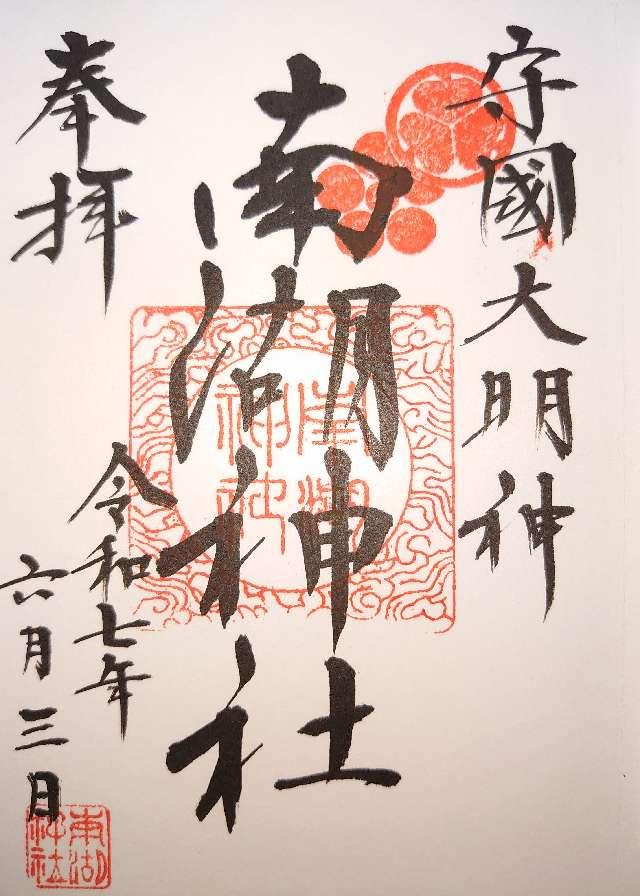 守國大明神
南湖神社
奉拝
令和七年
六月三日
南湖神社
南湖神社